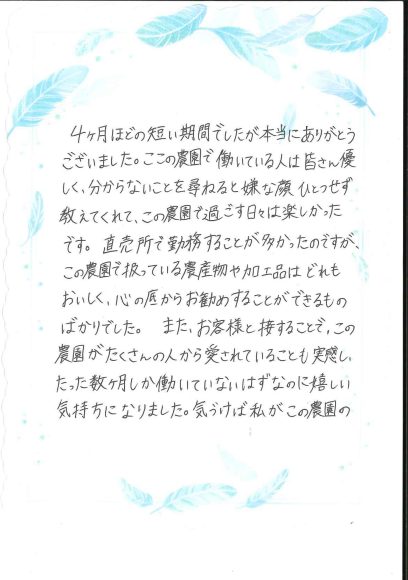 4ヶ月ほどの短い期間でしたが本当にありがとう
ございました。ここの農園で働いている人は皆さん優
しく、分からないことを尋ねると嫌な顔ひとつせず
教えてくれて、この農園で過ごす日々は楽しかった
です。直売所で勤務することが多かったのですが、
この農園で扱っている農産物や加工品はどれも
おいしく、心の底からお勧めすることができるもの
ばかりでした。また、お客様と接することで、この
農園がたくさんの人から愛されていることも実感し、
たった数ヶ月しか働いていないはずなのに嬉しい
気持ちになりました。気づけば私がこの農園の